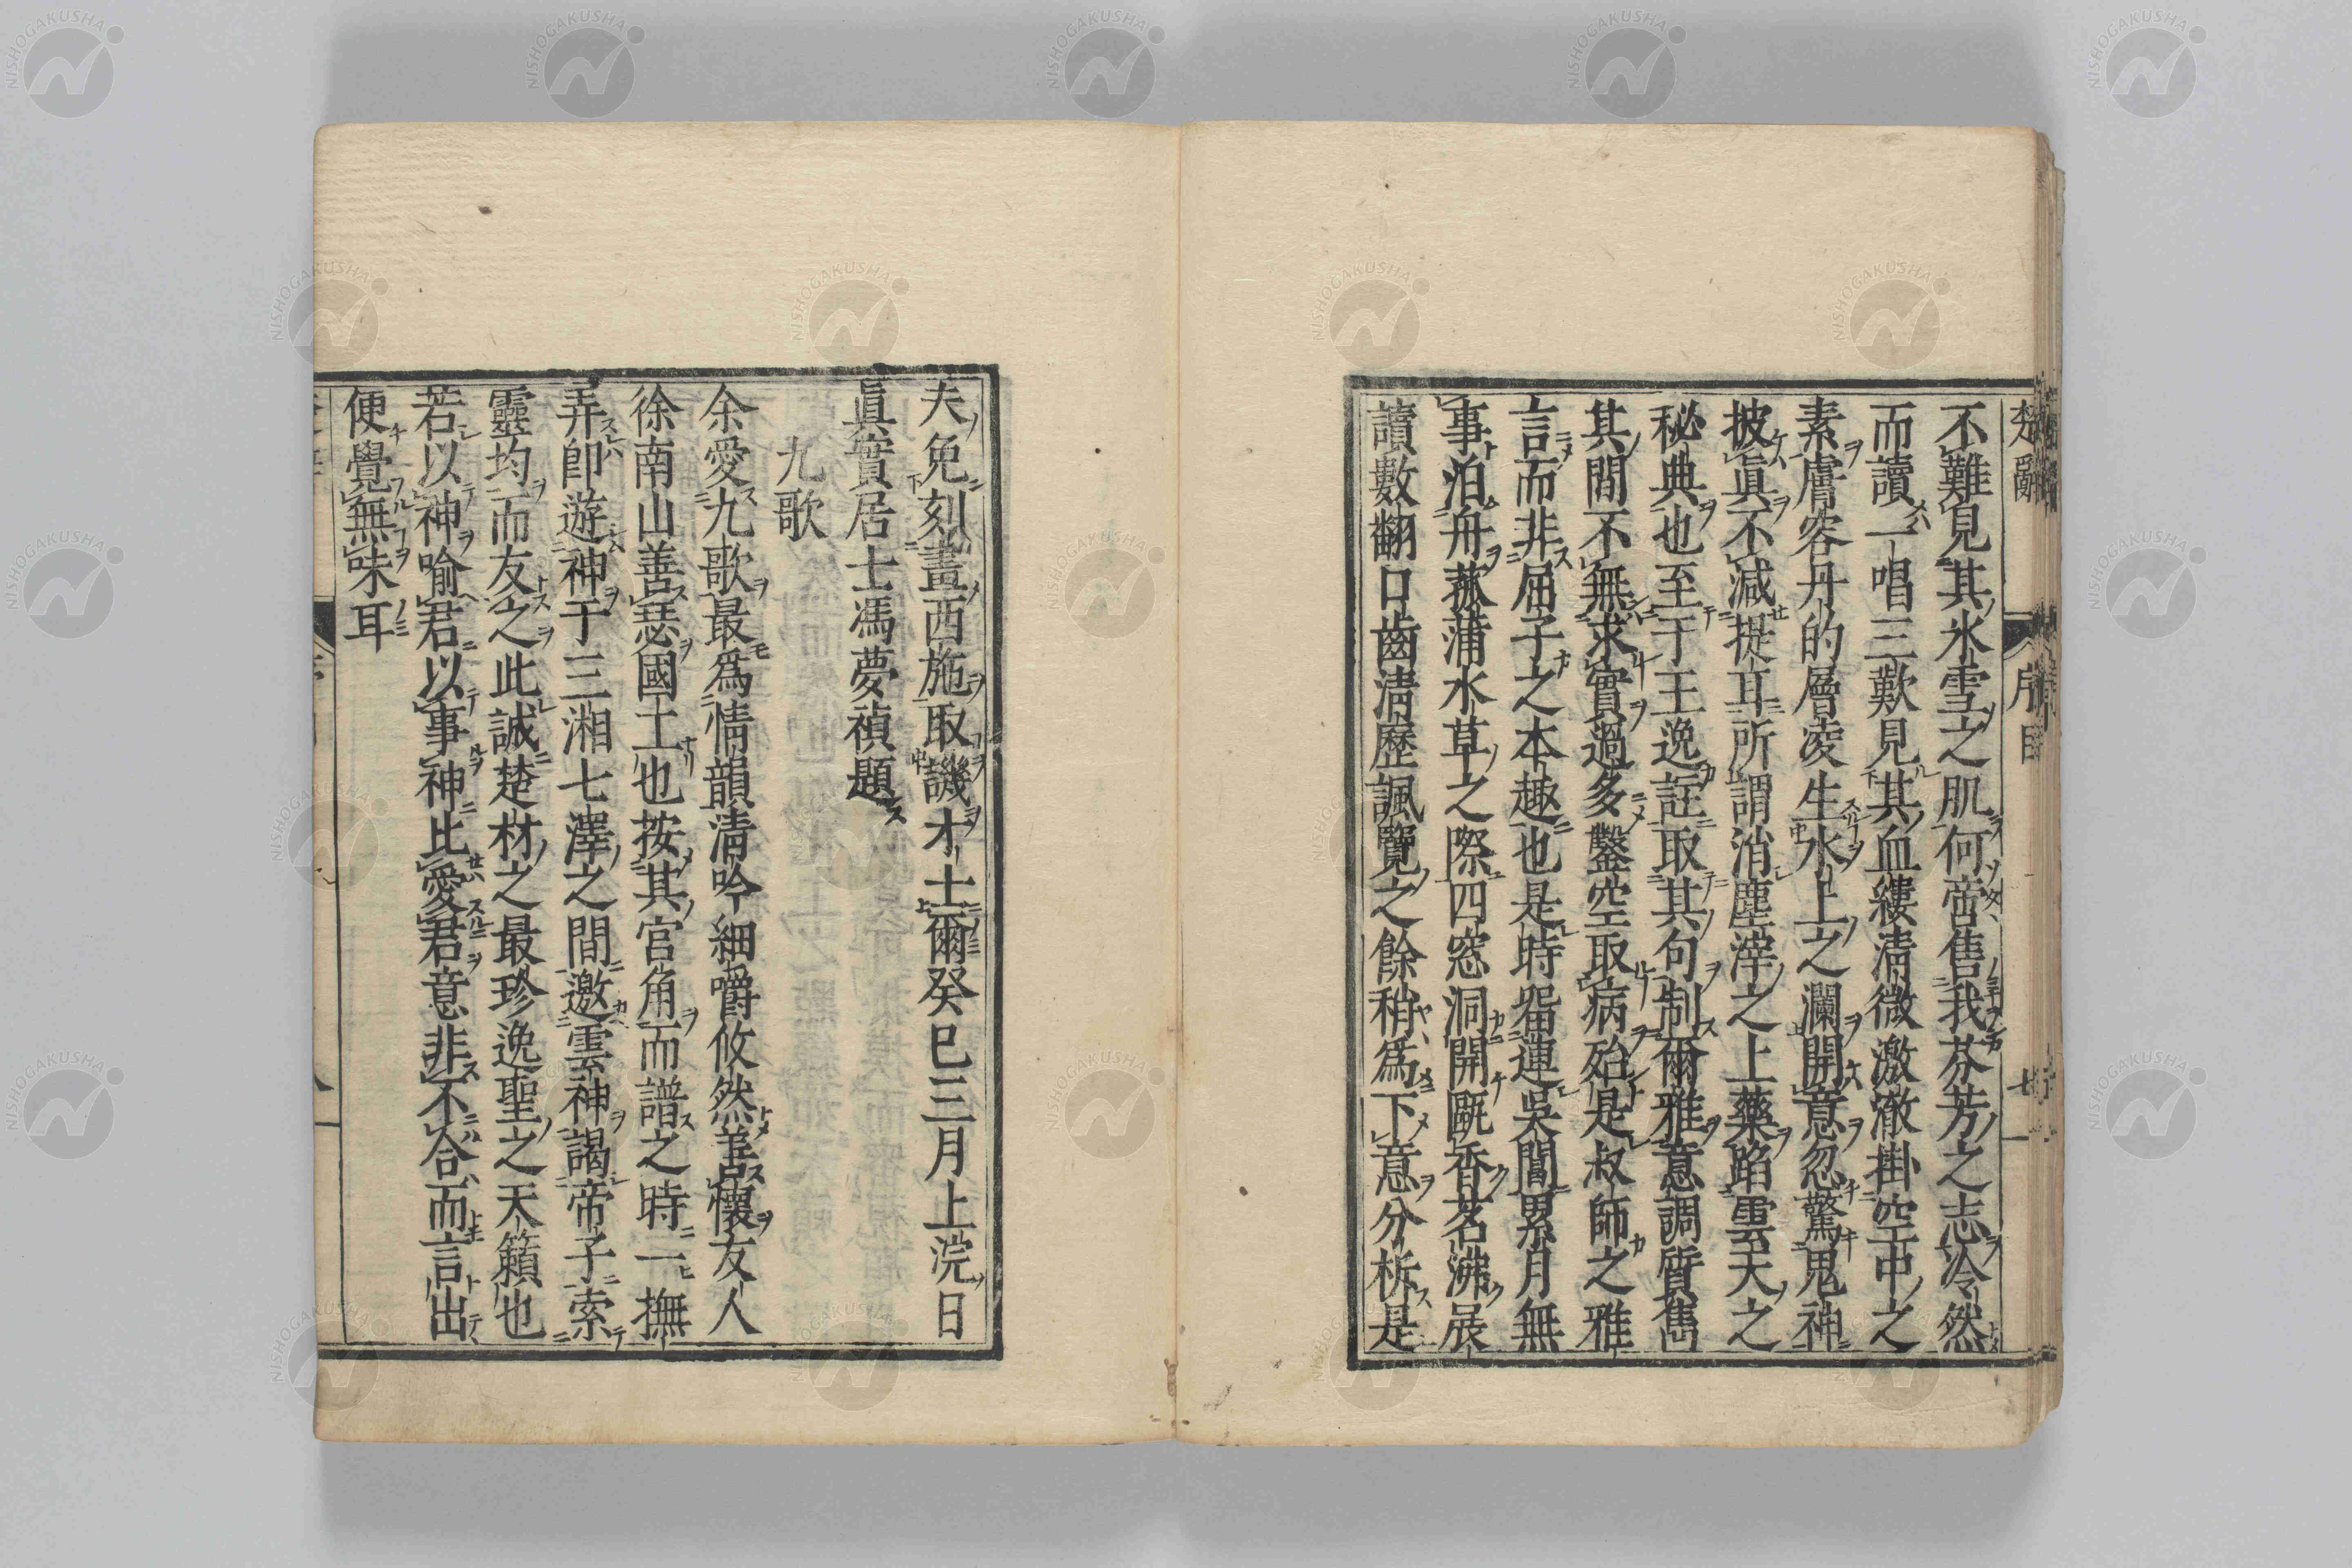 楚辭 序目 七
不難見其氷雪之肌何啻售我芬芳之志冷然
而讀一唱三歎見其血縷清微激澈掛空中之
素膚容丹的層凌生水上之瀾開意忽驚鬼神
披眞不減提耳所謂消塵滓之上藥蹈雲天之
秘典也至于王逸註取其句制爾雅意調質雋
其間不無求實過多鑿空取病殆是叔師之雅
言而非屈子之本趣也是時畱連吳閶累月無
事泊舟菰蒲水草之際四窓洞開甌香茗沸展
讀數翻口齒清歷諷覽之餘稍爲下意分柝是
夫免刻畫西施取譏才士爾癸巳三月上浣日
眞實居士馮夢禎題
九歌
余愛九歌最爲情韻清吟細嚼攸然善懷友人
徐南山善瑟國工也按其宮角而譜之時一撫
弄卽遊神于三湘七澤之間邀雲神謁帝子索
靈均而友之此誠楚材之最珍逸聖之天籟也
若以神喻君以事神比愛君意非不合而言出
便覺無味耳
NISHOGAKUSHA